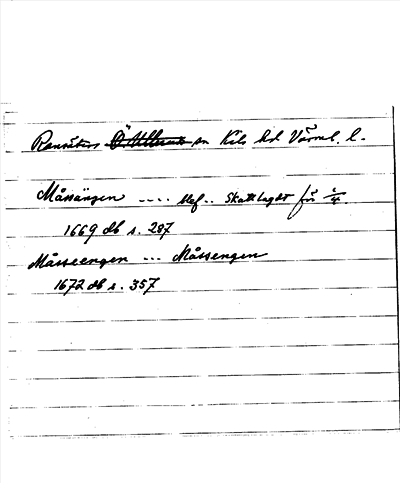 Ransäters sn Kils hd Värml. l.
Måssängen .... Skattlagdt för
1669 db s. 287
Måsseengen ... Måssengen
1672 db s. 357